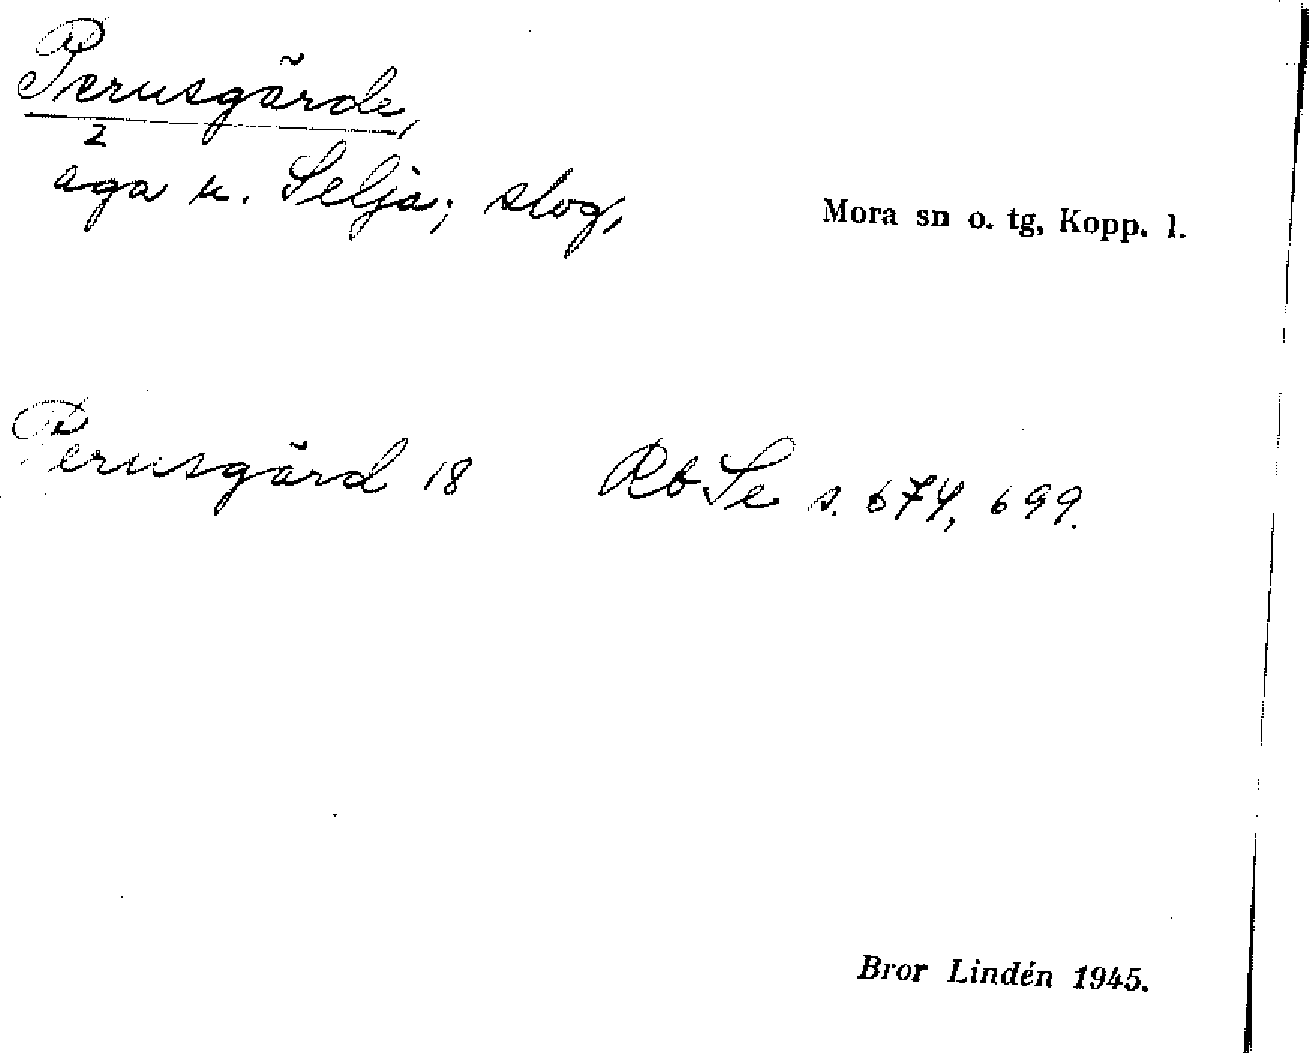 Perusgärde,
2
äga u. Selja; slog,
Mora sn o. tg, Kopp. l.
Perusgärd 18 Rb Se s. 674, 699.
Bror Lindén 1945.